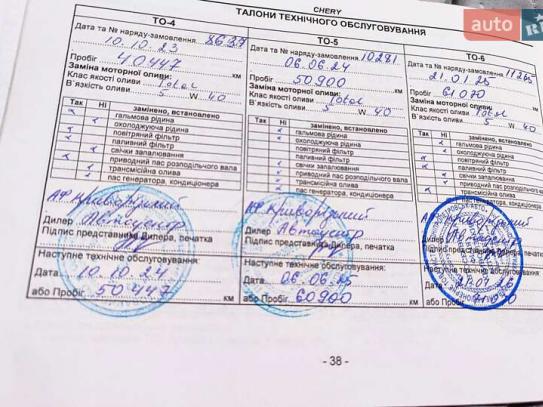 CHERY
ТАЛОНИ ТЕХНІЧНОГО ОБСЛУГОВУВАННЯ
auto
ТО-4
Дата та № наряду-замовлення 8637
10.10.23
Пробіг 40447 км
Заміна моторної оливи:
Клас якості оливи Total
В`язкість оливи 5 W 40
Так Ні замінено, встановлено
гальмова рідина
охолоджуюча рідина
повітряний фільтр
паливний фільтр
свічки запалювання
приводний пас розподільчого вала
трансмісійна олива
пас генератора, кондиціонера
Дилер
Підпис представника Дилера, печатка
Наступне технічне обслуговування:
Дата 10.10.24
або Пробіг 50447 км
ТО-5
Дата та № наряду-замовлення 10281
06.06.24
Пробіг 50900 км
Заміна моторної оливи:
Клас якості оливи Total
В`язкість оливи 5 W 40
Так Ні замінено, встановлено
гальмова рідина
охолоджуюча рідина
повітряний фільтр
паливний фільтр
свічки запалювання
приводний пас розподільчого вала
трансмісійна олива
пас генератора, кондиціонера
Дилер
Підпис представника Дилера, печатка
Наступне технічне обслуговування:
Дата 06.06.25
або Пробіг 60900 км
ТО-6
Дата та № наряду-замовлення 11265
21.01.25
Пробіг 61070 км
Заміна моторної оливи:
Клас якості оливи Total
В`язкість оливи 5 W 40
Так Ні замінено, встановлено
гальмова рідина
охолоджуюча рідина
повітряний фільтр
паливний фільтр
свічки запалювання
приводний пас розподільчого вала
трансмісійна олива
пас генератора, кондиціонера
Дилер
Підпис представника Дилера, печатка
Наступне технічне обслуговування:
Дата 21.01.26
або Пробіг
- 38 -